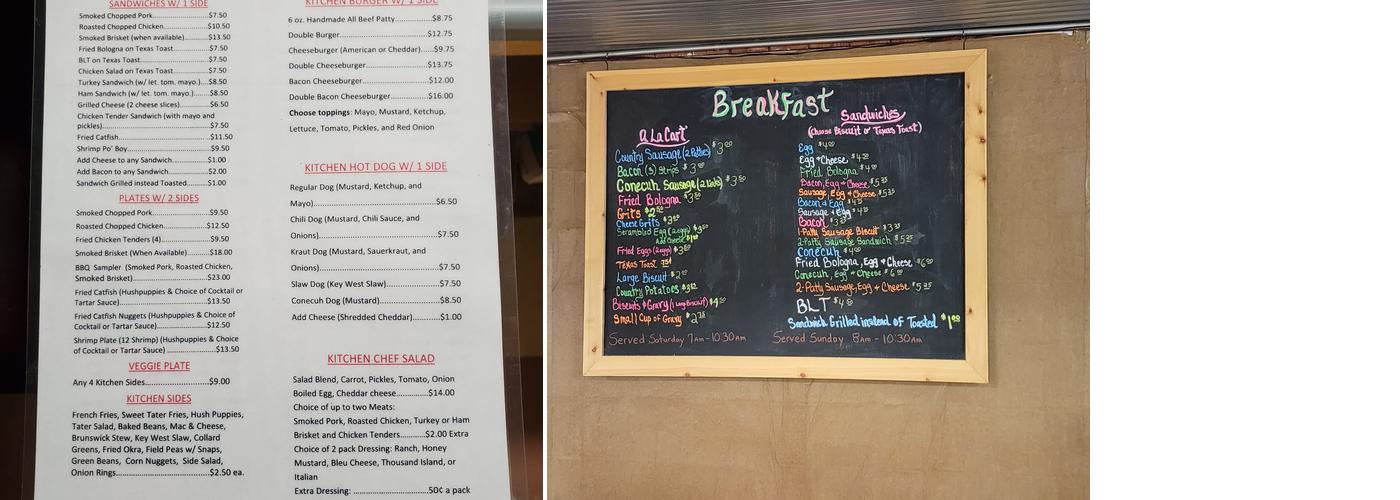 SANDWICHES W/ 1 SIDE
Smoked Chopped Pork..............................$7.50
Roasted Chopped Chicken.........................$10.50
Smoked Brisket (when available)................$13.50
Fried Bologna on Texas Toast......................$7.50
BLT on Texas Toast.....................................$7.50
Chicken Salad on Texas Toast.....................$7.50
Turkey Sandwich (w/ let. tom. mayo.)....$8.50
Ham Sandwich (w/ let. tom. mayo.).......$8.50
Grilled Cheese (2 cheese slices)................$6.50
Chicken Tender Sandwich (with mayo and
pickles).......................................................$7.50
Fried Catfish..............................................$11.50
Shrimp Po' Boy...........................................$9.50
Add Cheese to any Sandwich.....................$1.00
Add Bacon to any Sandwich.......................$2.00
Sandwich Grilled instead Toasted...............$1.00
PLATES W/ 2 SIDES
Smoked Chopped Pork............................$9.50
Roasted Chopped Chicken.....................$12.50
Fried Chicken Tenders (4).......................$9.50
Smoked Brisket (When Available)...........$18.00
BBQ Sampler (Smoked Pork, Roasted Chicken,
Smoked Brisket)....................................$23.00
Fried Catfish (Hushpuppies & Choice of Cocktail or
Tartar Sauce)........................................$13.50
Fried Catfish Nuggets (Hushpuppies & Choice of
Cocktail or Tartar Sauce)........................$12.50
Shrimp Plate (12 Shrimp) (Hushpuppies & Choice
of Cocktail or Tartar Sauce) ....................$13.50
VEGGIE PLATE
Any 4 Kitchen Sides.........................$9.00
KITCHEN SIDES
French Fries, Sweet Tater Fries, Hush Puppies,
Tater Salad, Baked Beans, Mac & Cheese,
Brunswick Stew, Key West Slaw, Collard
Greens, Fried Okra, Field Peas w/ Snaps,
Green Beans, Corn Nuggets, Side Salad,
Onion Rings....................................$2.50 ea.
KITCHEN BURGER W/ 1 SIDE
6 oz. Handmade All Beef Patty..............$8.75
Double Burger.......................................$12.75
Cheeseburger (American or Cheddar)......$9.75
Double Cheeseburger............................$13.75
Bacon Cheeseburger.............................$12.00
Double Bacon Cheeseburger.................$16.00
Choose toppings: Mayo, Mustard, Ketchup,
Lettuce, Tomato, Pickles, and Red Onion
KITCHEN HOT DOG W/ 1 SIDE
Regular Dog (Mustard, Ketchup, and
Mayo)................................................$6.50
Chili Dog (Mustard, Chili Sauce, and
Onions)..............................................$7.50
Kraut Dog (Mustard, Sauerkraut, and
Onions)..............................................$7.50
Slaw Dog (Key West Slaw)..................$7.50
Conecuh Dog (Mustard)......................$8.50
Add Cheese (Shredded Cheddar).........$1.00
KITCHEN CHEF SALAD
Salad Blend, Carrot, Pickles, Tomato, Onion
Boiled Egg, Cheddar cheese..........$14.00
Choice of up to two Meats:
Smoked Pork, Roasted Chicken, Turkey or Ham
Brisket and Chicken Tenders.........$2.00 Extra
Choice of 2 pack Dressing: Ranch, Honey
Mustard, Bleu Cheese, Thousand Island, or
Italian
Extra Dressing: ..........................50¢ a pack
Breakfast
a La Cart
Country Sausage (2 Patties) $3.00
Bacon (3) Strips $3.00
Conecuh Sausage (2 links) $3.50
Fried Bologna $3.50
Grits $2.50
Cheese Grits $3.50
Scrambled Egg (2 eggs) $3.50
Add Cheese $1.00
Fried Eggs (2 eggs) $3.50
Texas Toast 75¢
Large Biscuit $2.00
Country Potatoes $3.00
Biscuits & Gravy (1 Large Biscuit) $4.50
Small Cup of Gravy $2.75
Sandwiches
(Choose Biscuit or Texas Toast)
Egg $4.00
Egg & Cheese $4.50
Fried Bologna $4.00
Bacon, Egg & Cheese $5.35
Sausage, Egg & Cheese $5.35
Bacon & Egg
Sausage & Egg
Bacon
1-Patty Sausage Biscuit $3.35
2-Patty Sausage Sandwich $5.25
Conecuh $4.00
Fried Bologna, Egg & Cheese $6.00
Conecuh, Egg & Cheese $6.00
2-Patty Sausage, Egg & Cheese $5.95
BLT $4.50
Sandwich Grilled instead of Toasted $1.00
Served Saturday 7am - 10:30am
Served Sunday 8am - 10:30am